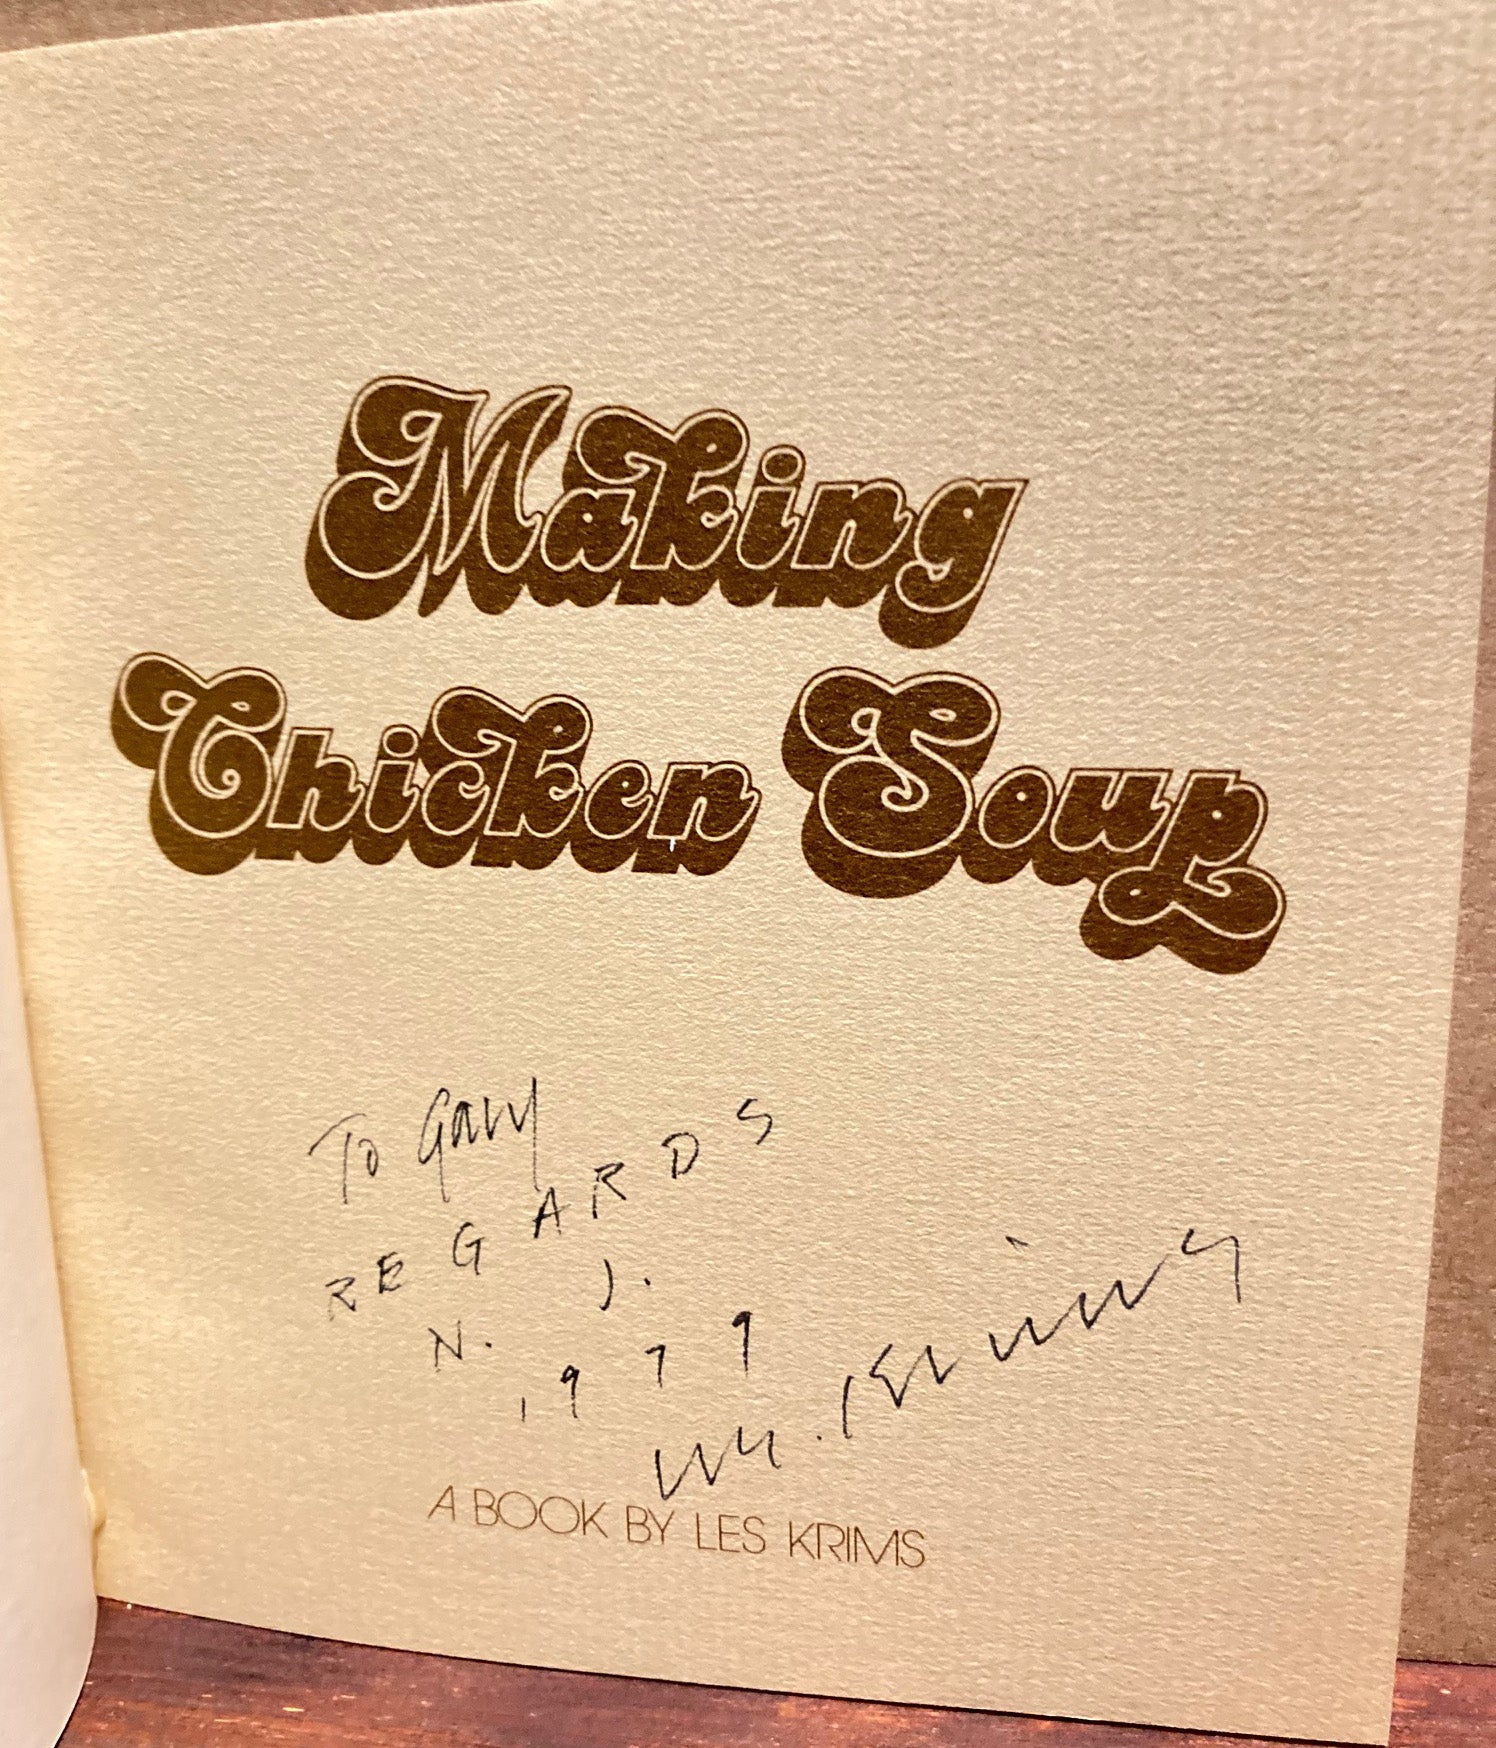 Making
Chicken Soup
To Gary
REGARDS
N. J.
1979
A BOOK BY LES KRIMS